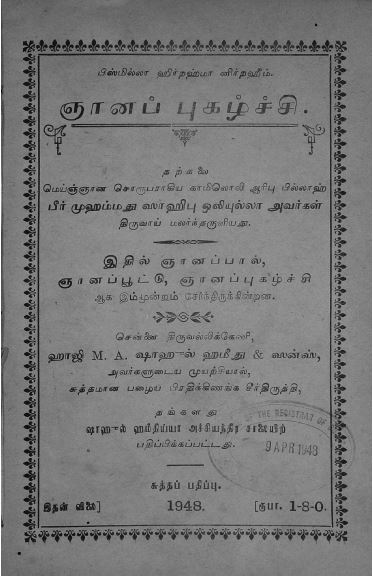 பிஸ்மில்லா ஹிர்றஹ்மா னிர்றஹீம்.
ஞானப் புகழ்ச்சி.
தற்கலை
மெய்ஞ்ஞான சொரூபராகிய காமிலொலி ஆரிபு பில்லாஹ்
பீர் முஹம்மது ஸாஹிபு ஒலியுல்லா அவர்கள்
திருவாய் மலர்ந்தருளியது.
இதில் ஞானப்பால்,
ஞானப்பூட்டு, ஞானப்புகழ்ச்சி
ஆக இம்மூன்றும் சேர்ந்திருக்கின்றன.
சென்னை திருவல்லிக்கேணி,
ஹாஜி M. A. ஷாஹுல் ஹமீது & ஸன்ஸ்,
அவர்களுடைய முயற்சியால்,
சுத்தமான பழைய பிரதிக்கிணங்க சீர்திருத்தி,
தங்களது
ஷாஹுல் ஹமீதிய்யா அச்சியந்திர சாலையிற்
பதிப்பிக்கப்பட்டது.
OF THE REGISTRAR OF
9 APR 1948
சுத்தப் பதிப்பு.
இதன் விலை] 1948. [ரூபா. 1-8-0.